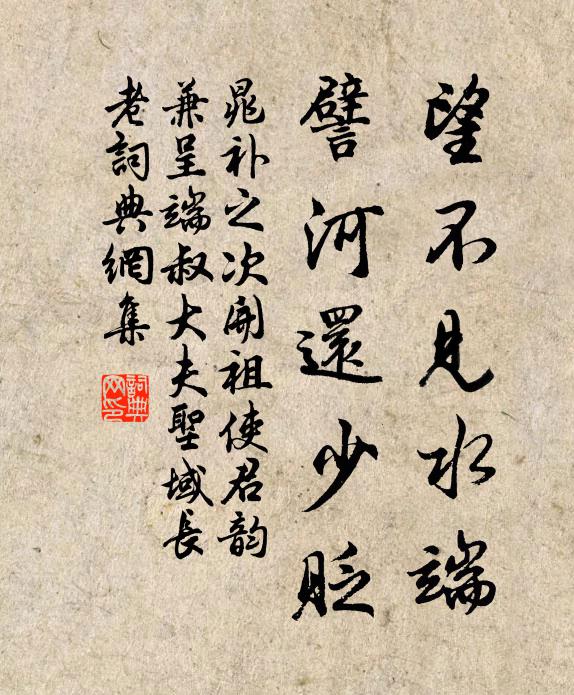 望不見水端
譬河還少貶
晁补之次開祖使君韵
兼呈端叔大夫聖域長
老詞典網集
詞典
网印